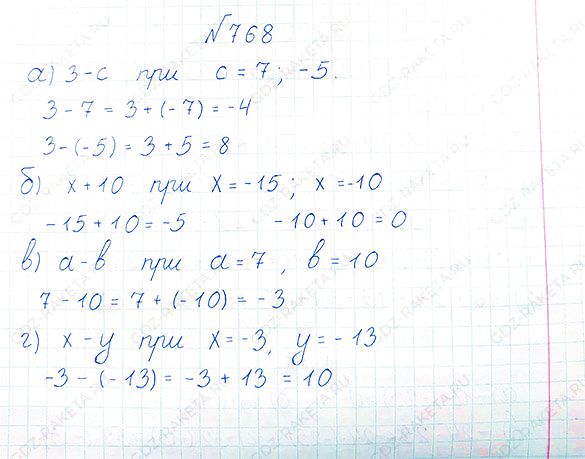 №768
а) 3-с при с = 7; -5.
3 - 7 = 3 + (-7) = -4
3-(-5) = 3 + 5 = 8
б) х + 10 при х = -15; х = -10
-15 + 10 = -5 -10 + 10 = 0
в) а - в при а = 7, в = 10
7 - 10 = 7 + (-10) = -3
г) х - у при х = -3, у = - 13
-3 - (-13) = -3 + 13 = 10
GDZ-RAKETA.RU